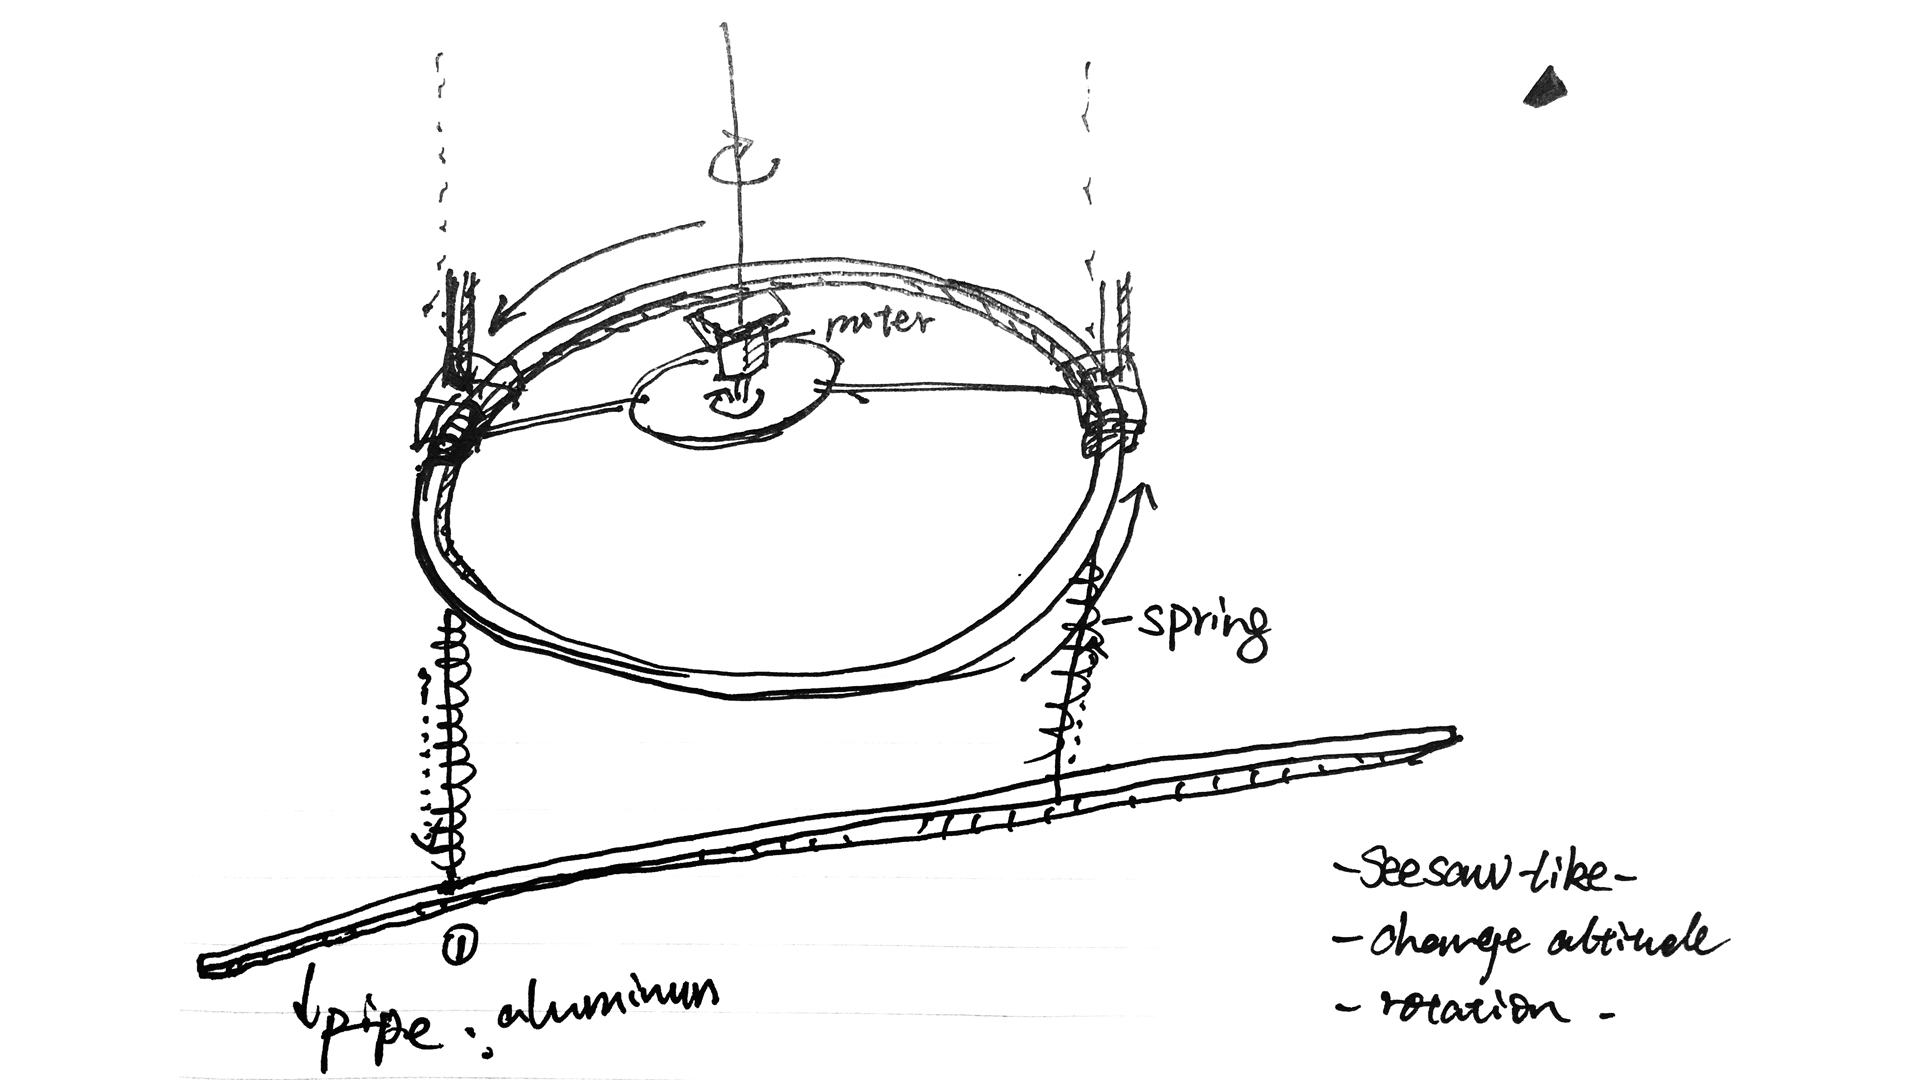 moter
-spring
①
pipe : aluminum
-Seesaw-like-
-change altitude
- rotation -